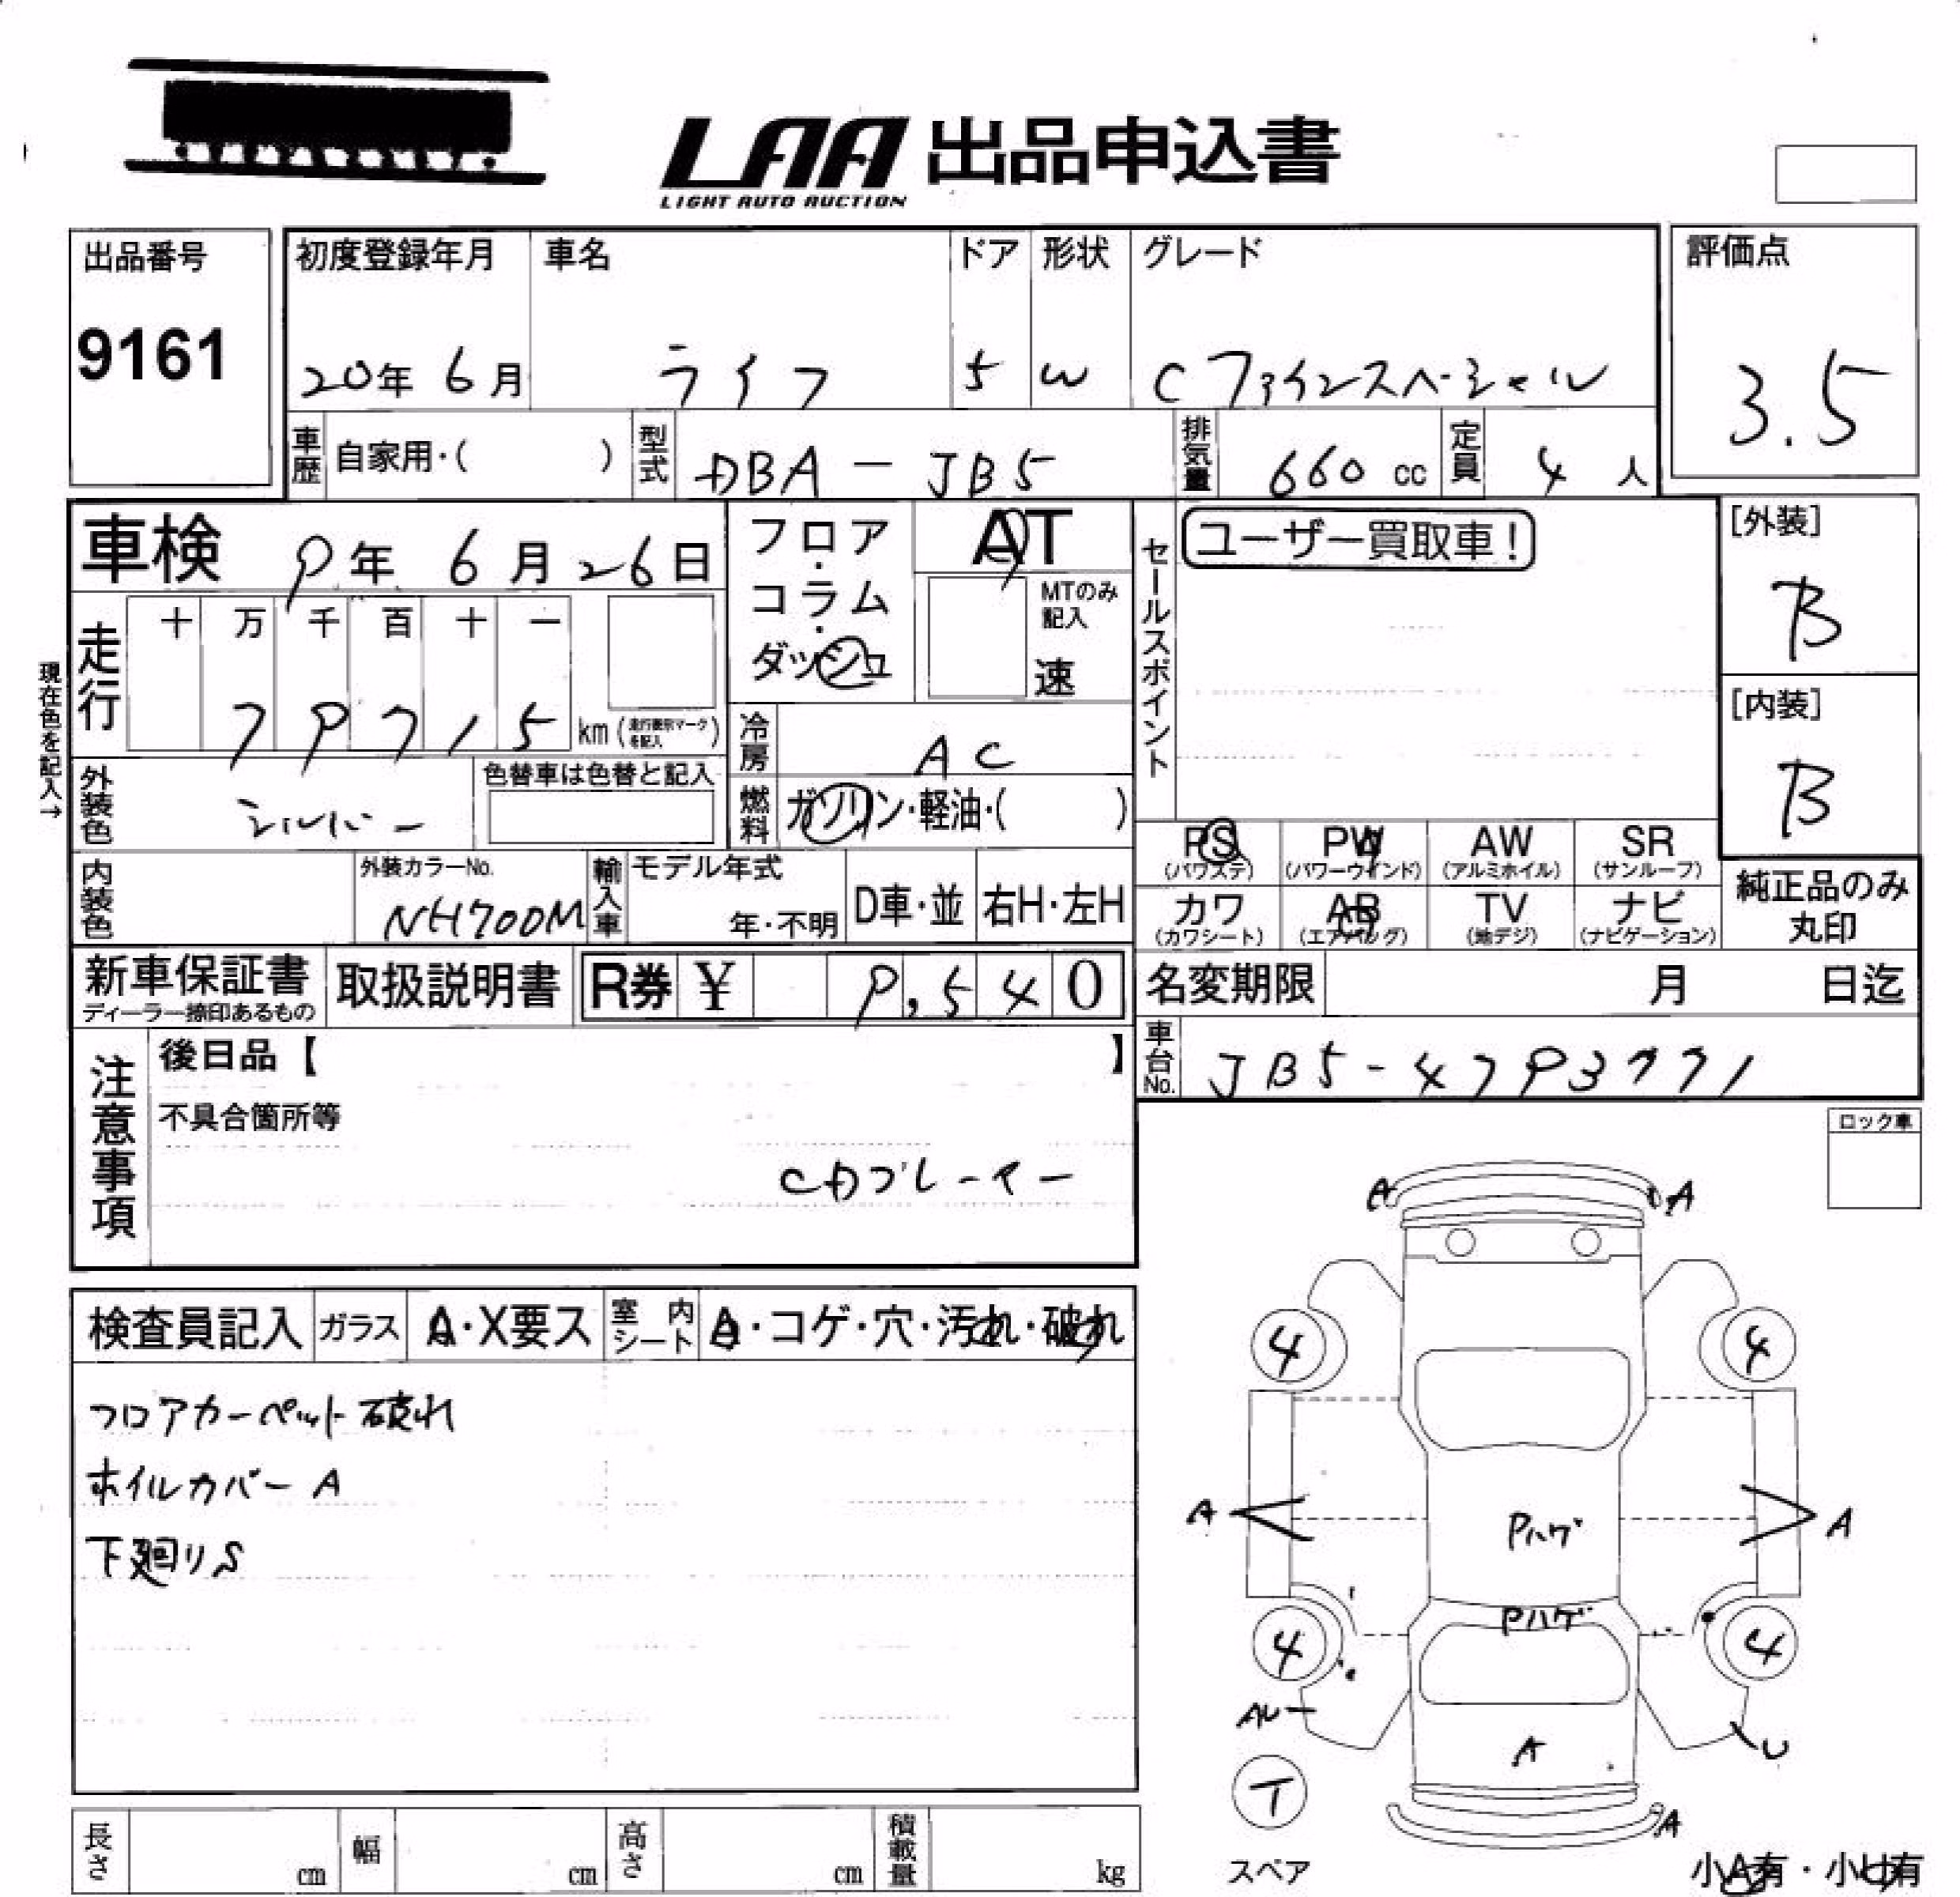 LAA 出品申込書
LIGHT AUTO AUCTION
出品番号
9161
初度登録年月
20年 6月
車名
ライフ
ドア
5
形状
W
グレード
C ファインスペシャル
評価点
3.5
車歴 自家用・( )
型式 DBA-JB5
排気量 660 cc
定員 4 人
車検 9年 6月 26日
フロア・コラム・ダッシュ
AT
MTのみ記入
速
セールスポイント
ユーザー買取車!
[外装]
B
[内装]
B
現在色を記入→
走行
十 万 千 百 十 一
7 9 7 1 5 km (走行表示マークを記入)
冷房 AC
外装色 シルバー
色替車は色替と記入
燃料 ガソリン・軽油・( )
PS (パワステ)
PW (パワーウインド)
AW (アルミホイル)
SR (サンルーフ)
カワ (カワシート)
AB (エアバッグ)
TV (地デジ)
ナビ (ナビゲーション)
純正品のみ丸印
内装色
外装カラーNo.
NH700M
輸入車
モデル年式
年・不明
D車・並
右H・左H
新車保証書
ディーラー捺印あるもの
取扱説明書
R券 ¥ 9,540
名変期限 月 日迄
車台No. JB5-4793771
注意事項
後日品【 】
不具合箇所等
CDプレーヤー
ロック車
検査員記入
ガラス A・X要ス
室内シート A・コゲ・穴・汚れ・破れ
フロアカーペット破れ
ホイルカバー A
下廻りS
A A
4 4
A A
Pハゲ
Pハゲ
4 4
AU
U
A
T
A
スペア
小A有・小U有
長さ cm
幅 cm
高さ cm
積載量 kg